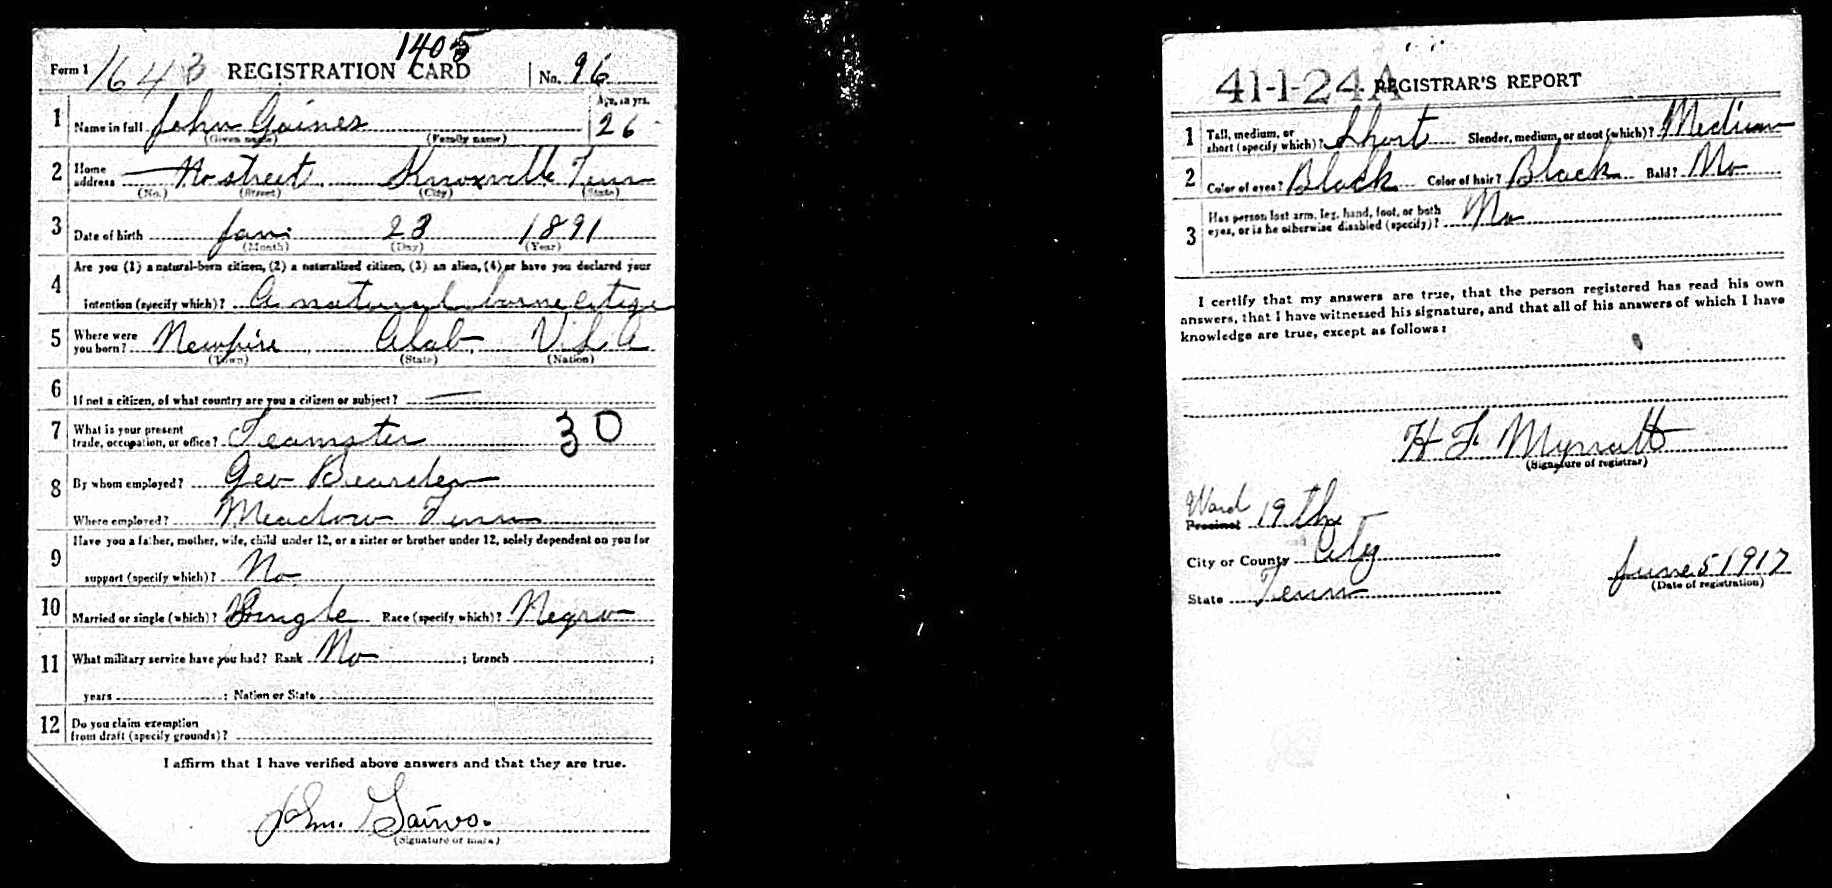 1405
Form 1 1643 REGISTRATION CARD No. 96
1 Name in full John Gaines Age, in yrs. 26
(Given name) (Family name)
2 Home address No street Knoxville Tenn
(No.) (Street) (City) (State)
3 Date of birth Jan. 23 1891
(Month) (Day) (Year)
4 Are you (1) a natural-born citizen, (2) a naturalized citizen, (3) an alien, (4) or have you declared your
intention (specify which)? A natural borne citize
5 Where were you born? Alab. U.S.A
(Town) (State) (Nation)
6 If not a citizen, of what country are you a citizen or subject? —
7 What is your present
trade, occupation, or office? Teamster 30
8 By whom employed? Geo Bearden
Where employed? Meadow Tenn
9 Have you a father, mother, wife, child under 12, or a sister or brother under 12, solely dependent on you for
support (specify which)? No
10 Married or single (which)? Single Race (specify which)? Negro
11 What military service have you had? Rank No ; branch ;
years ; Nation or State
12 Do you claim exemption
from draft (specify grounds)?
I affirm that I have verified above answers and that they are true.
John. Gaines.
(Signature or mark)
41-1-24A REGISTRAR'S REPORT
1 Tall, medium, or
short (specify which)? Short Slender, medium, or stout (which)? Medium
2 Color of eyes? Black Color of hair? Black Bald? No
3 Has person lost arm, leg, hand, foot, or both
eyes, or is he otherwise disabled (specify)? No
I certify that my answers are true, that the person registered has read his own
answers, that I have witnessed his signature, and that all of his answers of which I have
knowledge are true, except as follows:
H F
(Signature of registrar)
Ward
Precinct 19th
City or County City
State Tenn
June 5 1917
(Date of registration)